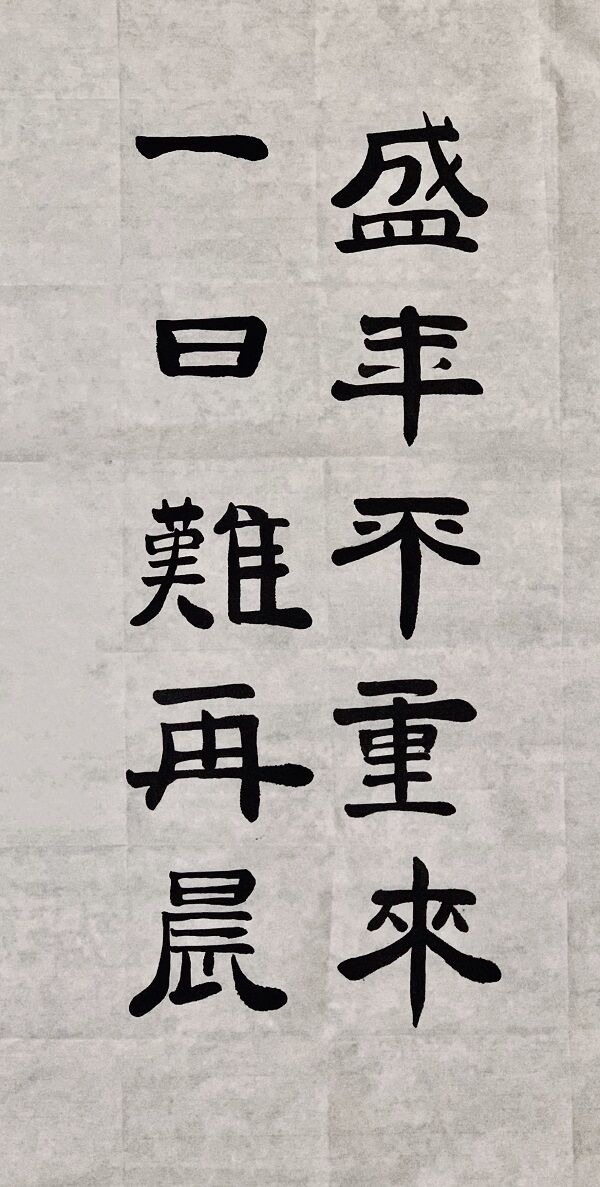 盛年不重來
一日難再晨